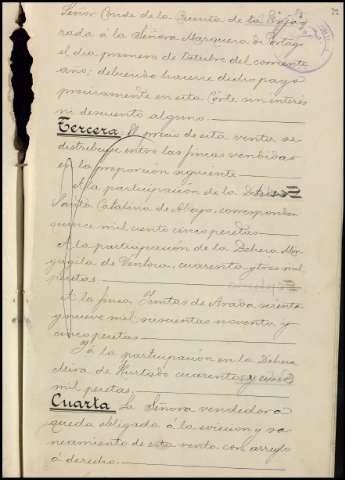 Señor Conde de la Puente de la
rada á la Señora Marquesa de
el dia primero de Octubre del corriente
año; debiendo hacerse dicho pago
precisamente en esta Corte sin interes
ni descuento alguno.
Tercera El precio de esta venta se
distribuye entre las fincas vendidas
en la proporcion siguiente
A la participación de la Dehesa
Santa Catalina de Abajo, corresponden
quince mil ciento cinco pesetas
A la participación de la Dehesa
de Ventosa, cuarenta y tres mil
pesetas.
A la finca, Juntas de Arada
y nueve mil noventa y
cinco pesetas
Y á la participación en la Dehesa
de Hurtado cuarenta y cinco
mil pesetas.
Cuarta La Señora vendedora
queda obligada á la eviccion y sa
neamiento de esta venta con arreglo
á derecho.